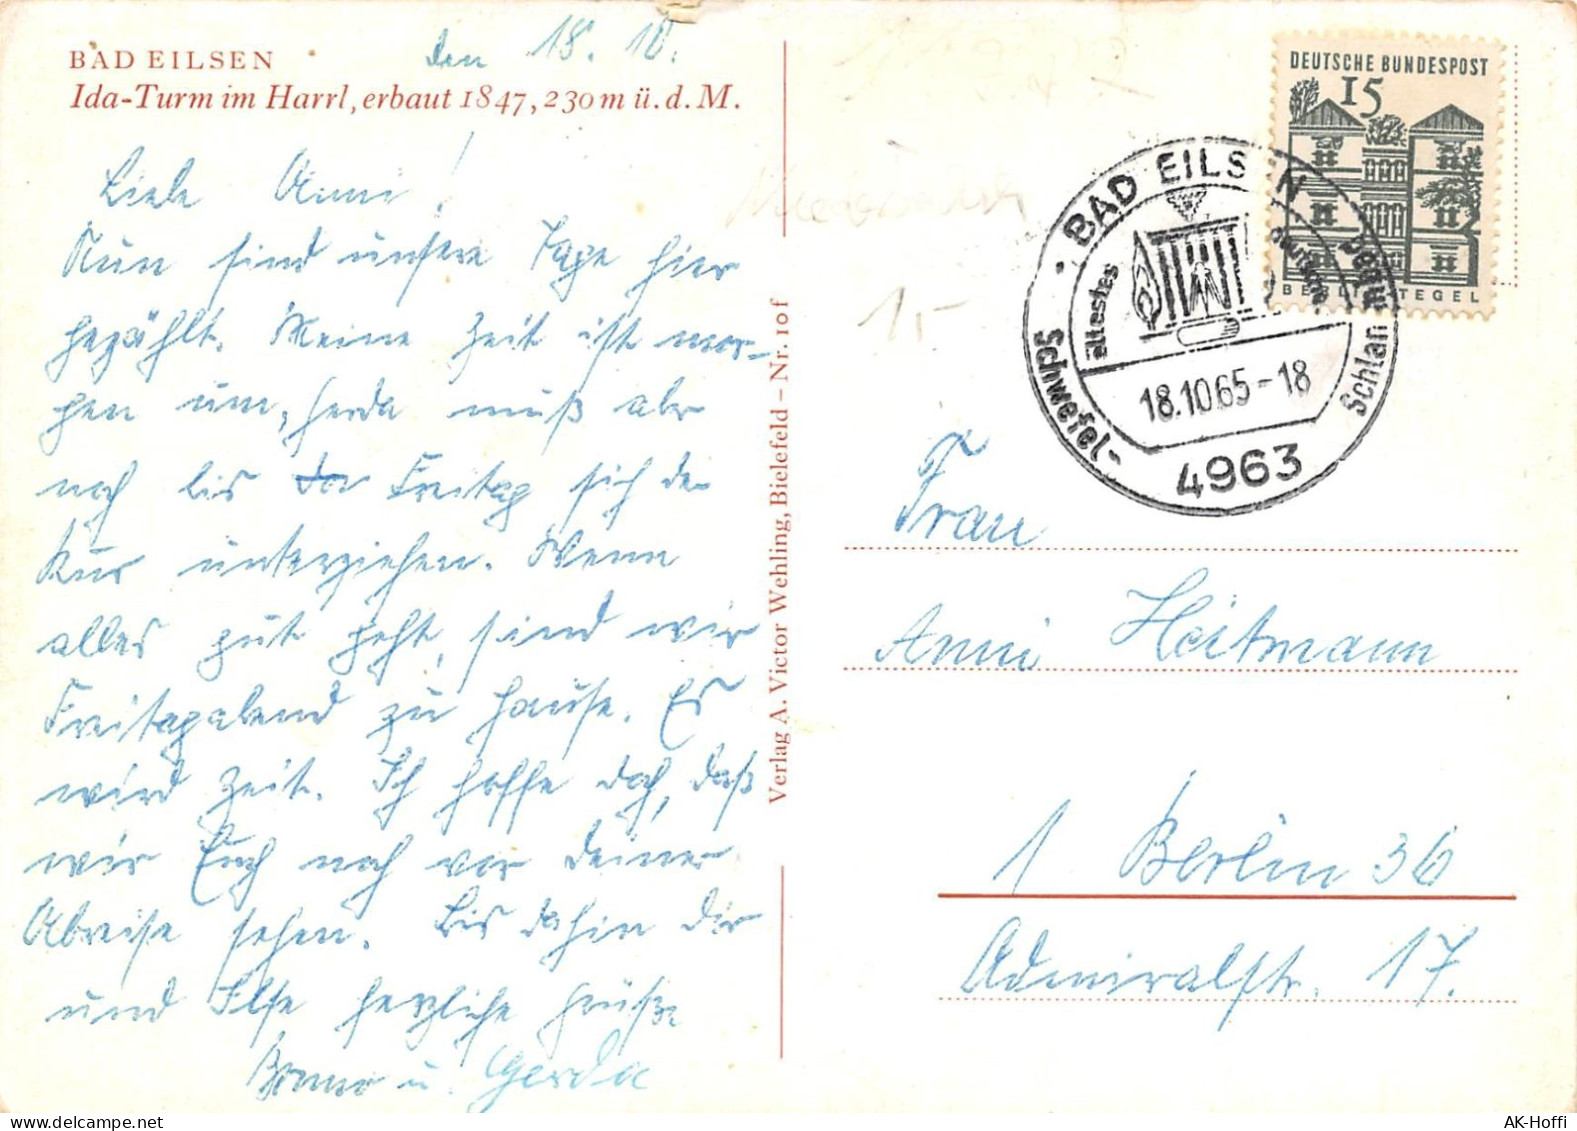 BAD EILSEN
Ida-Turm im Harrl, erbaut 1847, 230 m ü. d. M.
den 18. 10.
Liebe Anni!
Nun sind unsere Tage hier
gezählt. Meine Zeit ist mor-
gen um, Gerda muß aber
noch bis Freitag sich der
Kur unterziehen. Wenn
alles gut geht, sind wir
Freitagabend zu Hause. Es
wird Zeit. Ich hoffe doch, daß
wir Euch noch vor Deiner
Abreise sehen. Bis dahin Dir
und Ilse herzliche Grüße
u. Gerda
Verlag A. Victor Wehling, Bielefeld – Nr. 10f
DEUTSCHE BUNDESPOST
15
BERLIN-TEGEL
BAD EILSEN
ältestes deutsches
Schwefel- Schlammbad
18.10.65-18
4963
15
Frau
Anni Heitmann
1 Berlin 36
Admiralstr. 17.
AK-Hoffi